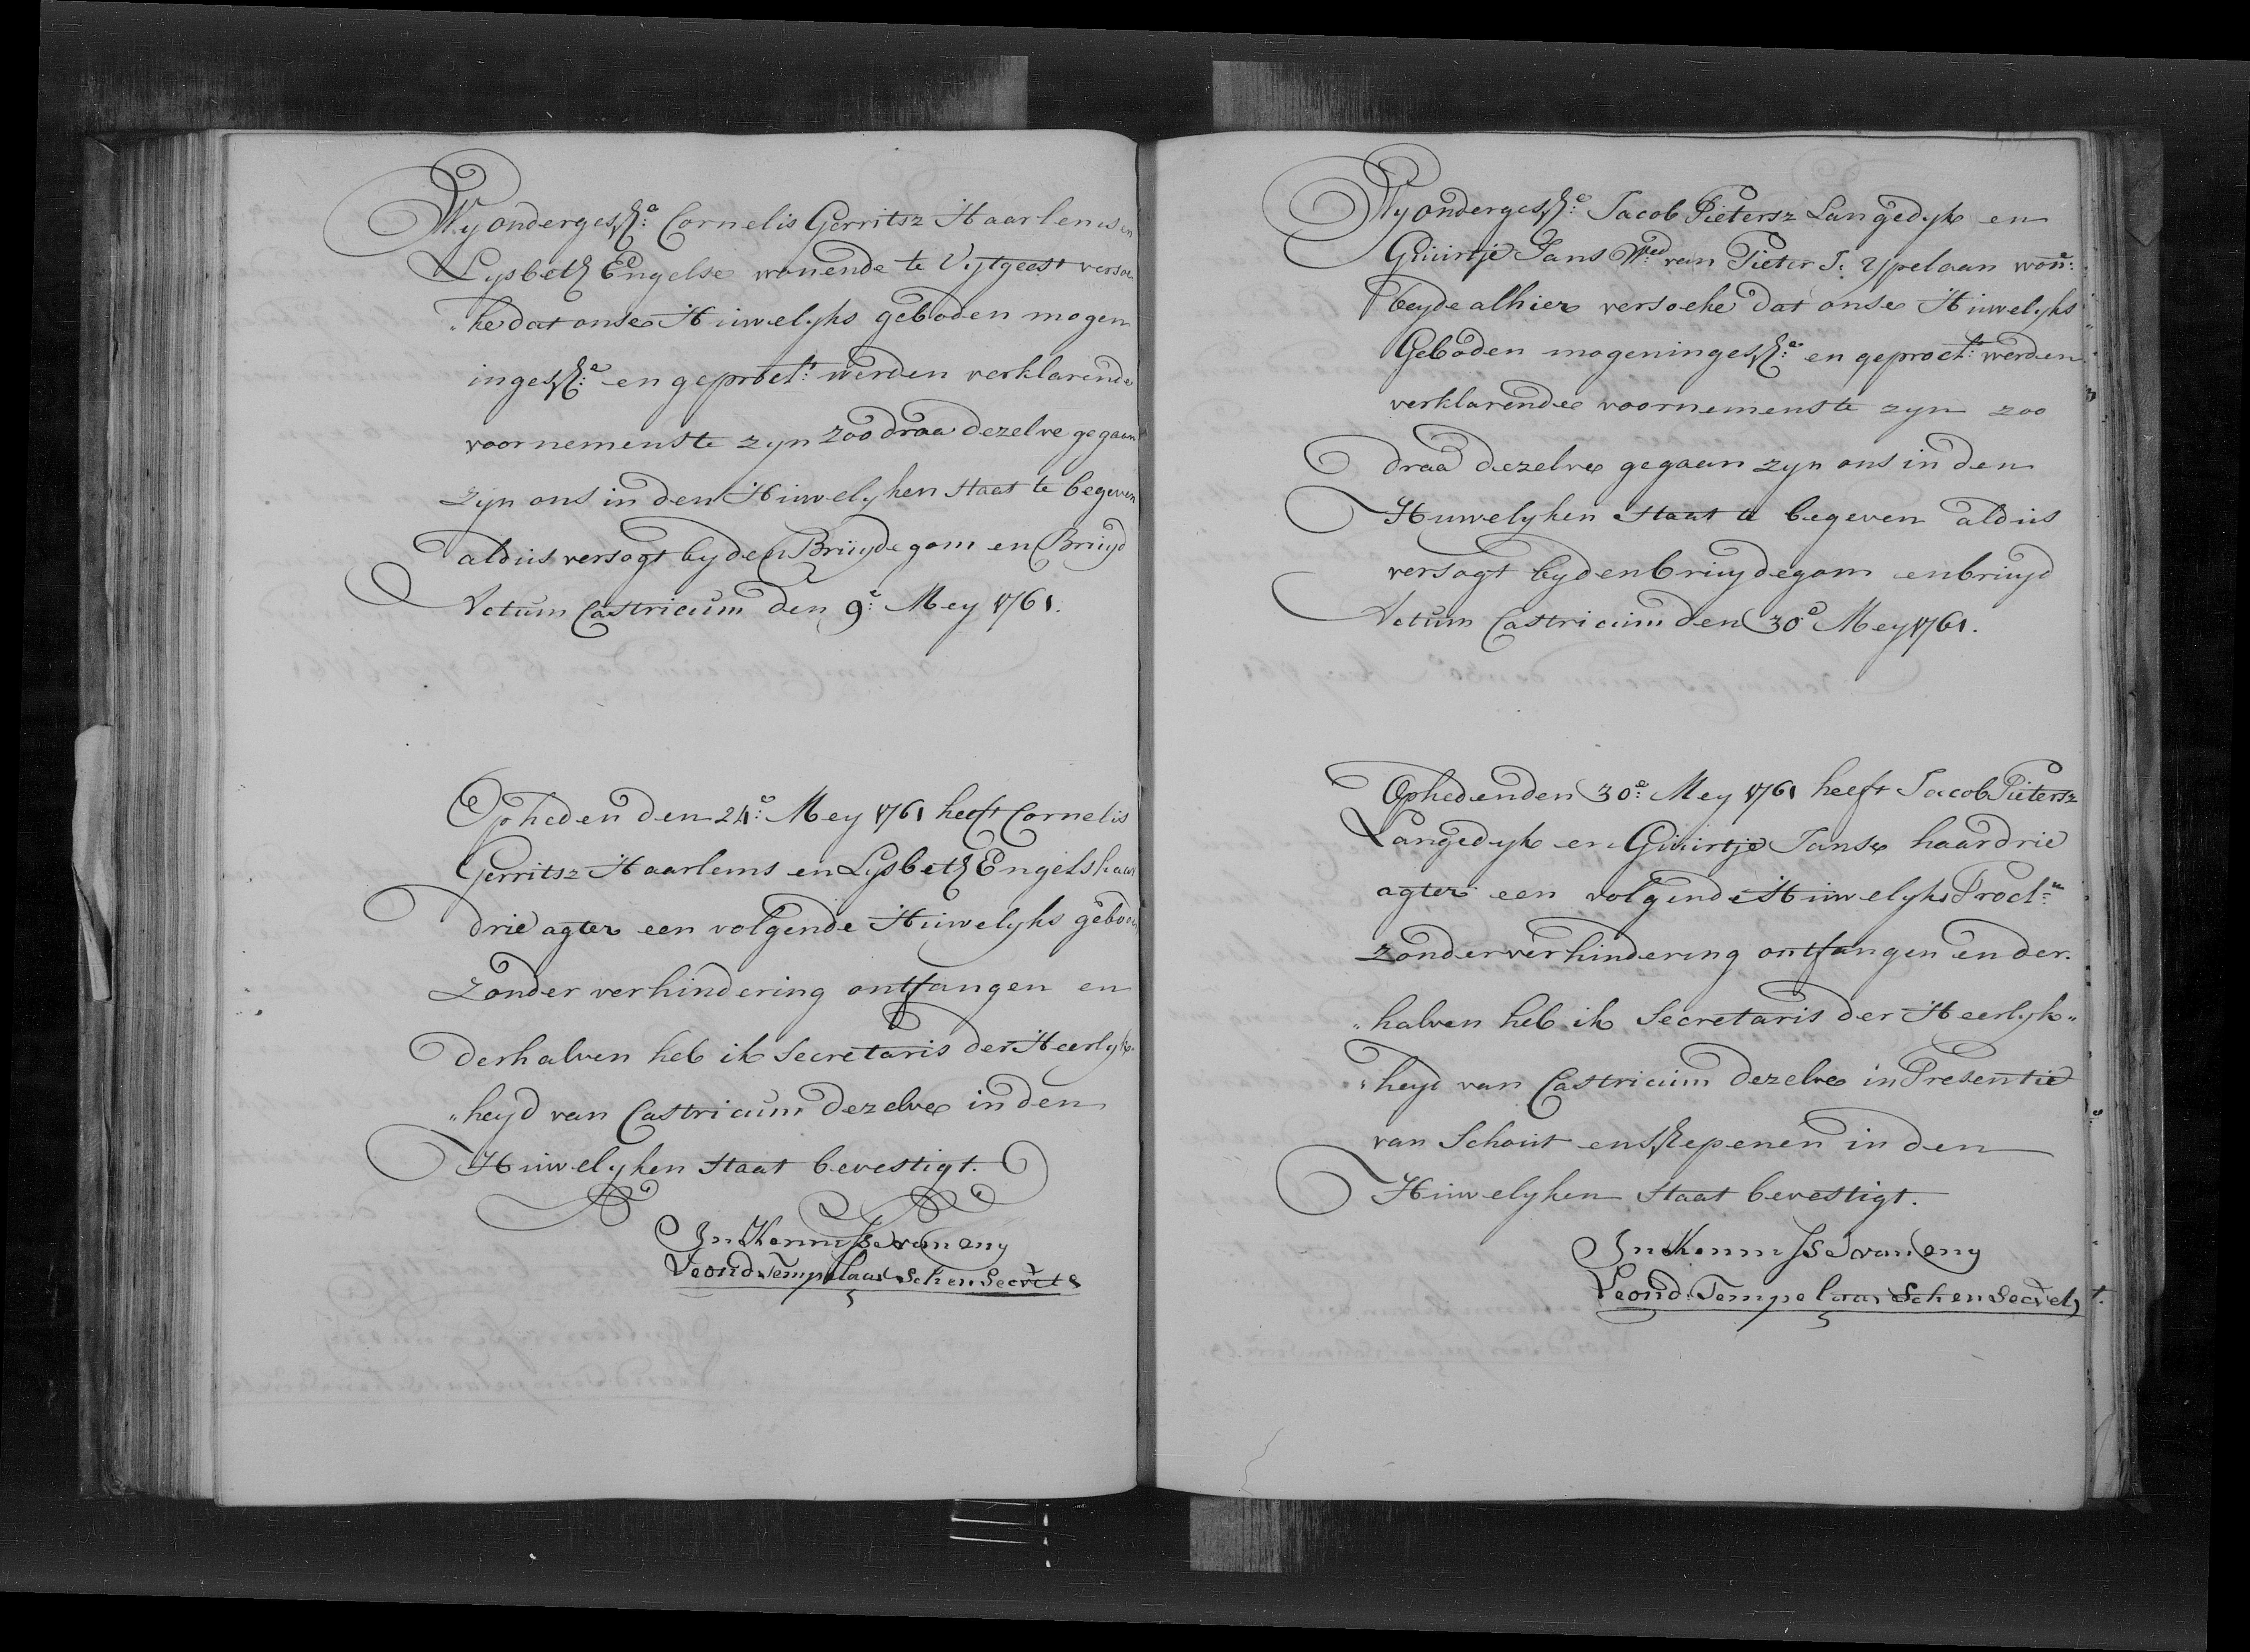 Wy ondergessz:e Cornelis Gerritsz Haarlems en
Lysbeth Engelse wonende te Uytgeest versoe
„ke dat onse Huwelyks geboden mogen
ingessz:e en geproclt: werden verklarende
voornemens te zyn zoo draa dezelve gegaan
zyn ons in den Huwelyken staat te begeven
aldus versogt by den Bruydegom en Bruyd
Actum Castricum den 9:e Mey 1761.
Op heden den 24:e Mey 1761 heeft Cornelis
Gerritsz Haarlems en Lysbeth Engels haar
drie agter een volgende Huwelyks geboden
zonder verhindering ontfangen en
derhalven heb ik Secretaris der Heerlyk„
„heyd van Castricum dezelve in den
Huwelyken staat bevestigt.
In Kennisse van my
Leond Tempelaar Sch en Secrets
Wy ondergessz:e Jacob Pietersz Langedyk en
Guurtje Jans Wed van Pieter J: Ypelaan won:
beyde alhier versoeke dat onse Huwelyks
Geboden mogen ingessz:e en geproclt: werden
verklarende voornemens te zyn zoo
draa dezelve gegaan zyn ons in den
Huwelyken staat te begeven aldus
versogt by den bruydegom en bruyd
Actum Castricum den 30e Mey 1761.
Op heden den 30:e Mey 1761 heeft Jacob Pietersz
Langedyk en Guurtje Janse haar drie
agter een volgende Huwelyks Procl:n
zonder verhindering ontfangen en der„
„halven heb ik Secretaris der Heerlyk„
„heyd van Castricum dezelve in Presentie
van Schout en Scepenen in den
Huwelyken staat bevestigt.
In Kennisse van my
Leond: Tempelaar Sch en Secrets